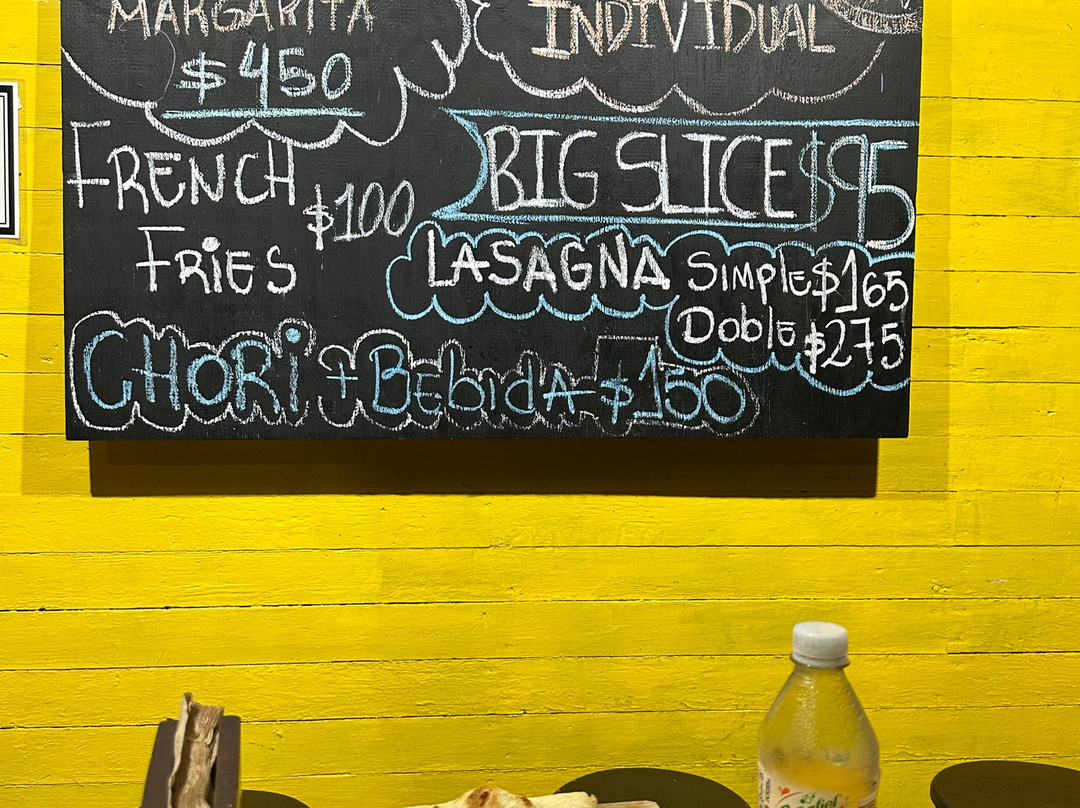 MARGARITA
$450
INDIVIDUAL
FRENCH
FRIES
$100
BIG SLICE $95
LASAGNA Simple $165
Doble $275
CHORI + Bebida $150